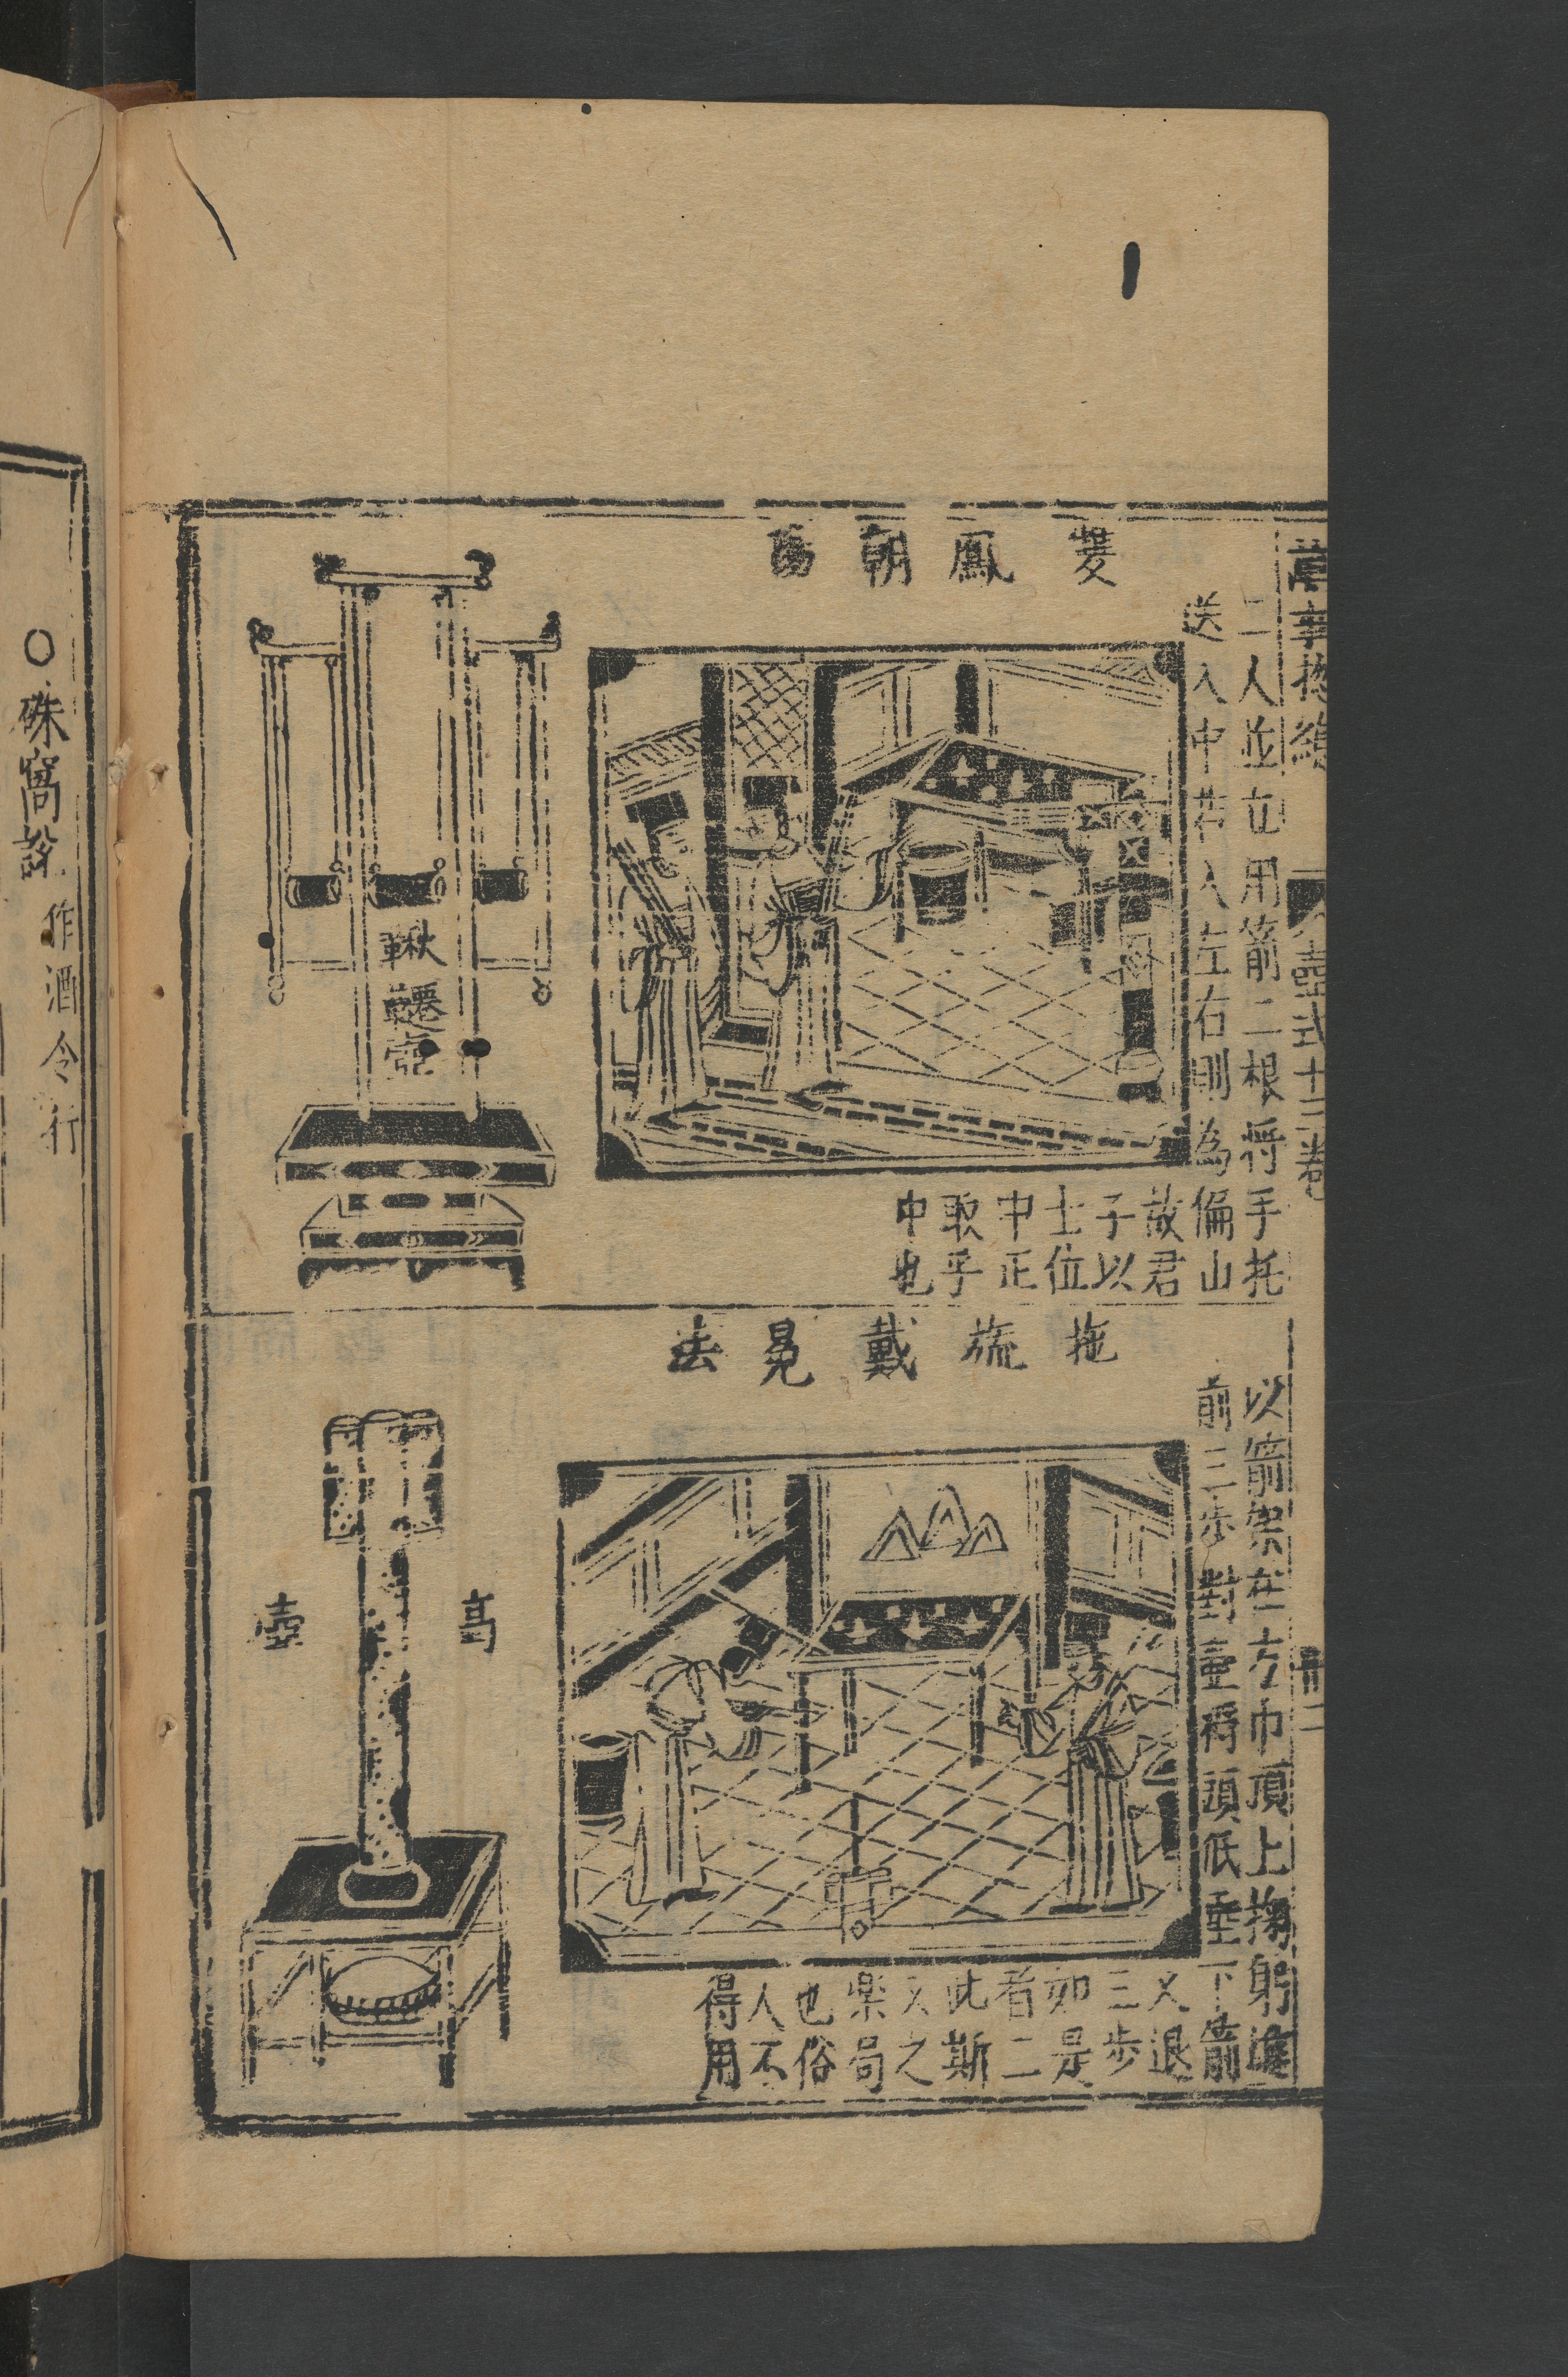 萬事
壺式十三卷
卅二
雙鳳朝陽
二人並立用箭二根将手托
送入中若入左右則為偏山
故君
子以
士位
中正
取乎
中也
鞦韆壺
拖旒戴冕法
以箭架在方巾頂上掬躬進
前三步對壺将頭低垂下箭
又退
三步
如是
者二
此斯
文之
楽局
也俗
人不
得用
高壺
○硃窩說作酒令行